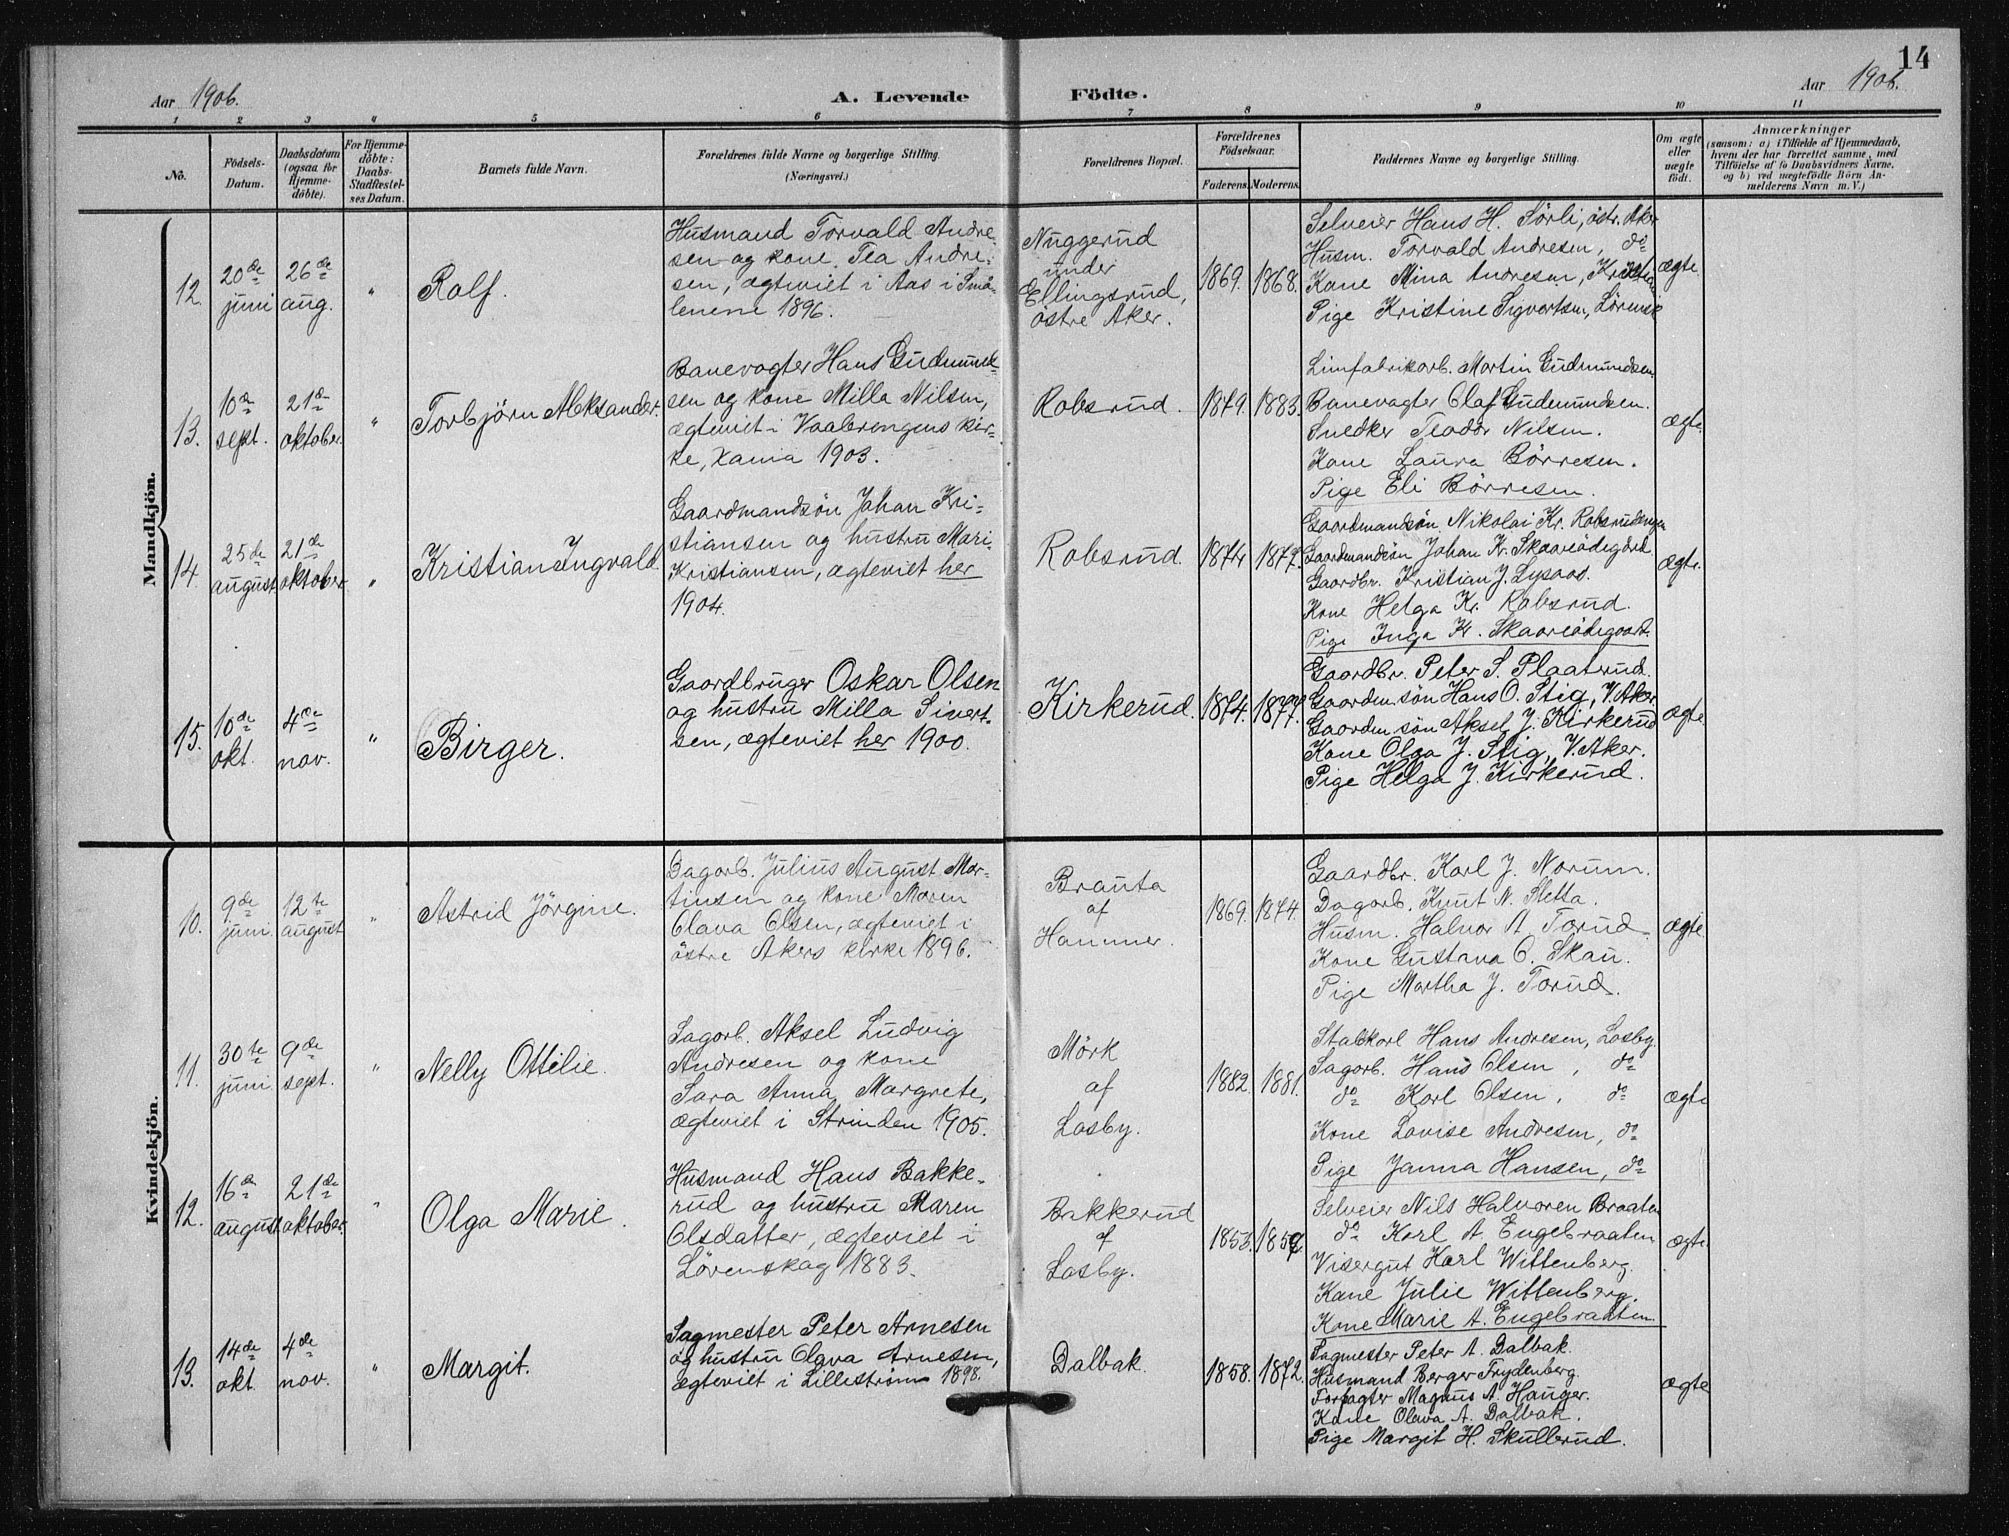 14
Aar 1906.
A. Levende Födte.
Aar 1906.
1 2 3 4 5 6 7 8 9 10 11
No.
Födsels-Datum.
Daabsdatum (ogsaa for Hjemme-döbte).
For Hjemme-döbte: Daabs-Stadfæstel-ses Datum.
Barnets fulde Navn.
Forældrenes fulde Navne og borgerlige Stilling.
(Næringsvei.)
Forældrenes Bopæl.
Forældrenes Födselsaar.
Faderens. Moderens.
Faddernes Navne og borgerlige Stilling.
Om ægte eller uægte födt.
Anmærkninger
(saasom: a) i Tilfælde af Hjemmedaab, hvem der har forrettet samme, med Tilföielse af to Daabsvidners Navne, og b) ved uægtefödte Börn An-melderens Navn m. V.)
Mandkjön.
12. 20de juni 26de aug. " Rolf.
Husmand Torvald Andre-
sen og kone Tea Andre-
sen, ægteviet i Aas i Smaa-
lenene 1896.
Nuggerud
under
Ellingsrud,
östre Aker.
1869. 1868.
Selveier Hans H. Sörli, östr. Aker
Husm. Torvald Andresen, do
Kone Mina Andresen,
Pige Kristine Sigvartsen, Lörensk
ægte.
13. 10de sept. 21de oktober. " Torbjörn Aleksander.
Banevogter Hans Gudmund-
sen og kone Milla Nilsen,
ægteviet i Vaalerengens kir-
ke, Xania 1903.
Robsrud.
1879. 1883.
Limfabrikarb. Martin Gudmundsen.
Banevogter Olaf Gudmundsen.
Snedker Teodor Nilsen.
Kone Laura Börresen.
Pige Eli Börresen.
ægte.
14 25de august 21de oktober " Kristian Ingvald
Gaardmandsön Johan Kri-
stiansen og hustru Mari
Kristiansen, ægteviet her
1904.
Robsrud.
1874 1877.
Gaardmandsön Nikolai Kr. Robsrudengen
Gaardmandsön Johan Kr. Skaarerödegård.
Gaardbr. Kristian J. Lysaas.
Kone Helga Kr. Robsrud.
Pige Inga Kr. Skaarerödegaard.
ægte.
15. 10de okt. 4de nov. " Birger.
Gaardbruger Oskar Olsen
og hustru Milla Sivert-
sen, ægteviet her 1900.
Kirkerud.
1874. 1877.
Gaardbr. Peter S. Plaatrud.
Gaardm.sön Hans O. Stig, V. Aker.
Gaardm.sön Aksel J. Kirkerud
Kone Olga J. Stig, V. Aker.
Pige Helga J. Kirkerud.
ægte
Kvindekjön.
10. 9de juni. 12te august " Astrid Jörgine.
Dagarb. Julius August Mar-
tinsen og kone Maren
Olava Olsen, ægteviet i
östre Akers kirke 1896.
Brauta
af
Hammer.
1869. 1874.
Gaardbr. Karl J. Norum.
Dagarb. Knut N. Sletta.
Husm. Halvor A. Torud.
Kone Gustava O. Skau.
Pige Martha J. Torud.
ægte
11. 30te juni 9de sept. " Nelly Ottilie.
Sagarb. Aksel Ludvig
Andresen og kone
Sara Anna Margrete,
ægteviet i Strinden 1905.
Mörk
af
Losby.
1882. 1881.
Staldkarl Hans Andresen, Losby.
Sagarb. Hans Olsen, do
do Karl Olsen, do
Kone Lovise Andresen, do
Pige Janna Hansen, do
ægte
12. 16de august 21de oktober. " Olga Marie.
Husmand Hans Bakke-
rud og hustru Maren
Olsdatter, ægteviet i
Lörenskog 1883.
Bakkerud
af
Losby.
1853.
Selveier Nils Halvorsen Braaten
do Karl A. Engebraaten
Visergut Karl Wittenberg.
Kone Julie Wittenberg.
Kone Marie A. Engebraaten.
ægte.
13. 14de okt. 4de nov. " Margit.
Sagmester Peter Arnesen
og hustru Olava Arnesen,
ægteviet i Lilleström 1898.
Dalbak.
1858. 1872.
Sagmester Peter A. Dalbak.
Husmand Berger Frydenberg.
Forvagter Magnus A. Hauger.
Kone Olava A. Dalbak.
Pige Margit H. Skullerud.
ægte